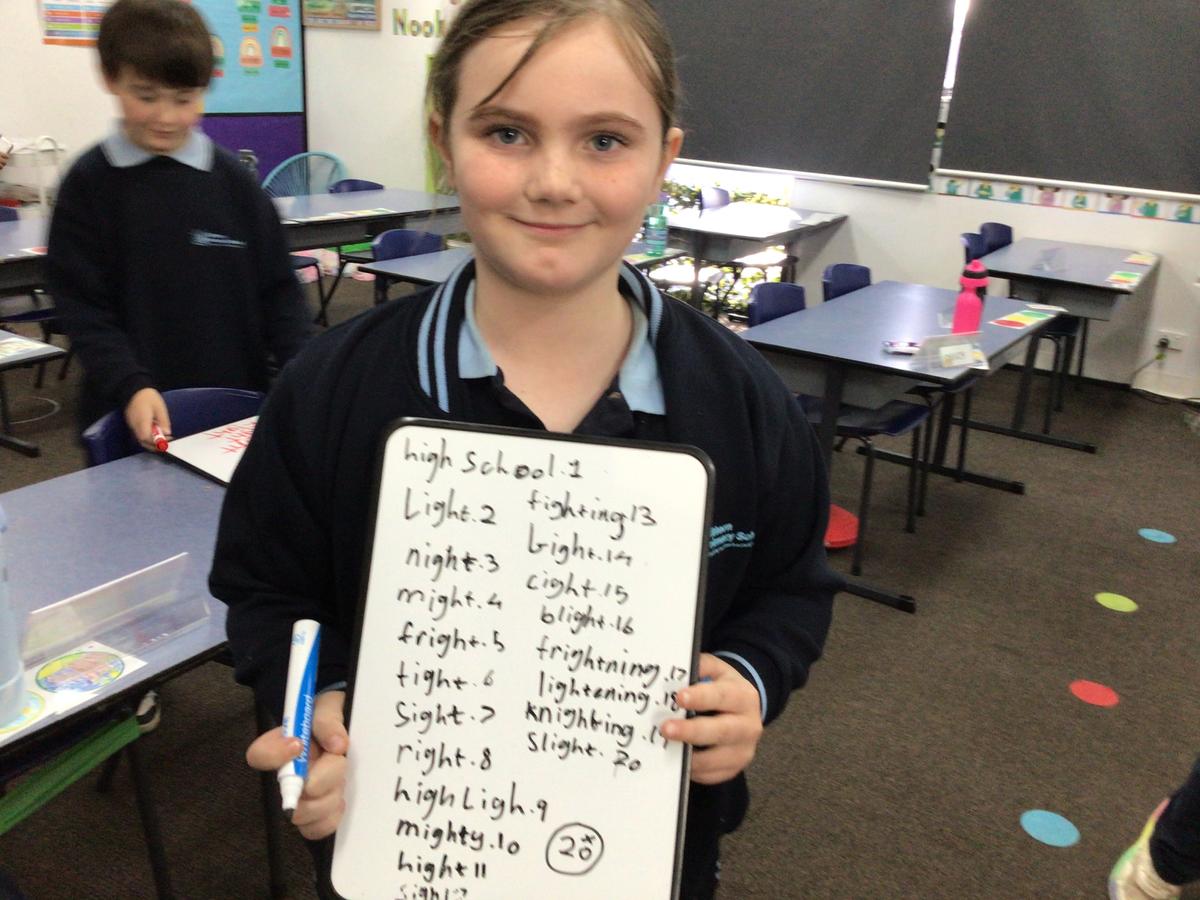 high School.1
Light.2
night.3
might.4
fright.5
tight.6
Sight.7
right.8
high Ligh.9
mighty.10
hight 11
sigh12
fighting13
bight.14
cight.15
blight.16
frightning.17
lightening.18
Knighting.19
Slight.20
20
Whiteboard
Nook